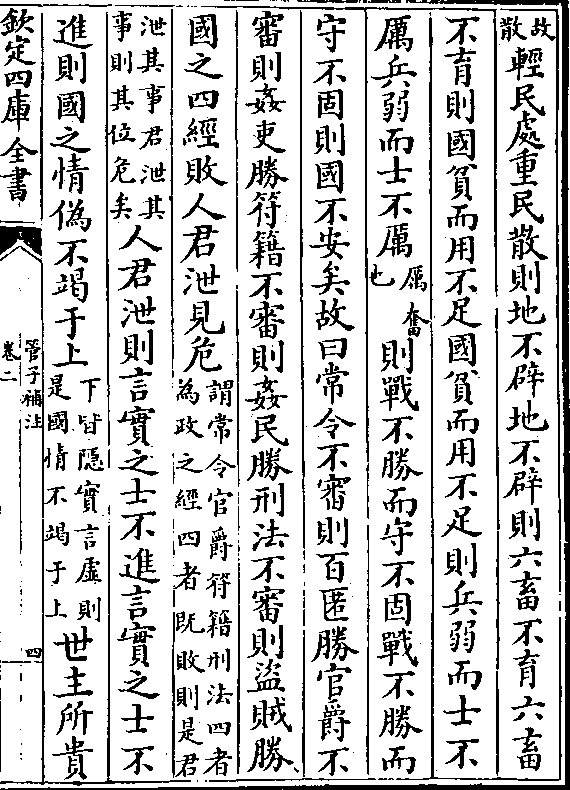 故散輕民處重民散則地不辟地不辟則六畜不育六畜
不育則國貧而用不足國貧而用不足則兵弱而士不
厲兵弱而士不厲厲奮也則戰不勝而守不固戰不勝而
守不固則國不安矣故曰常令不審則百匿勝官爵不
審則姦吏勝符籍不審則姦民勝刑法不審則盜賊勝
國之四經敗人君泄見危謂常令官爵符籍刑法四者為政之經四者既敗則是君
泄其事君泄其事則其位危矣人君泄則言實之士不進言實之士不
進則國之情偽不竭于上下皆隱實言虛則是國情不竭于上世主所貴
欽定四庫全書
管子補注
卷二
四